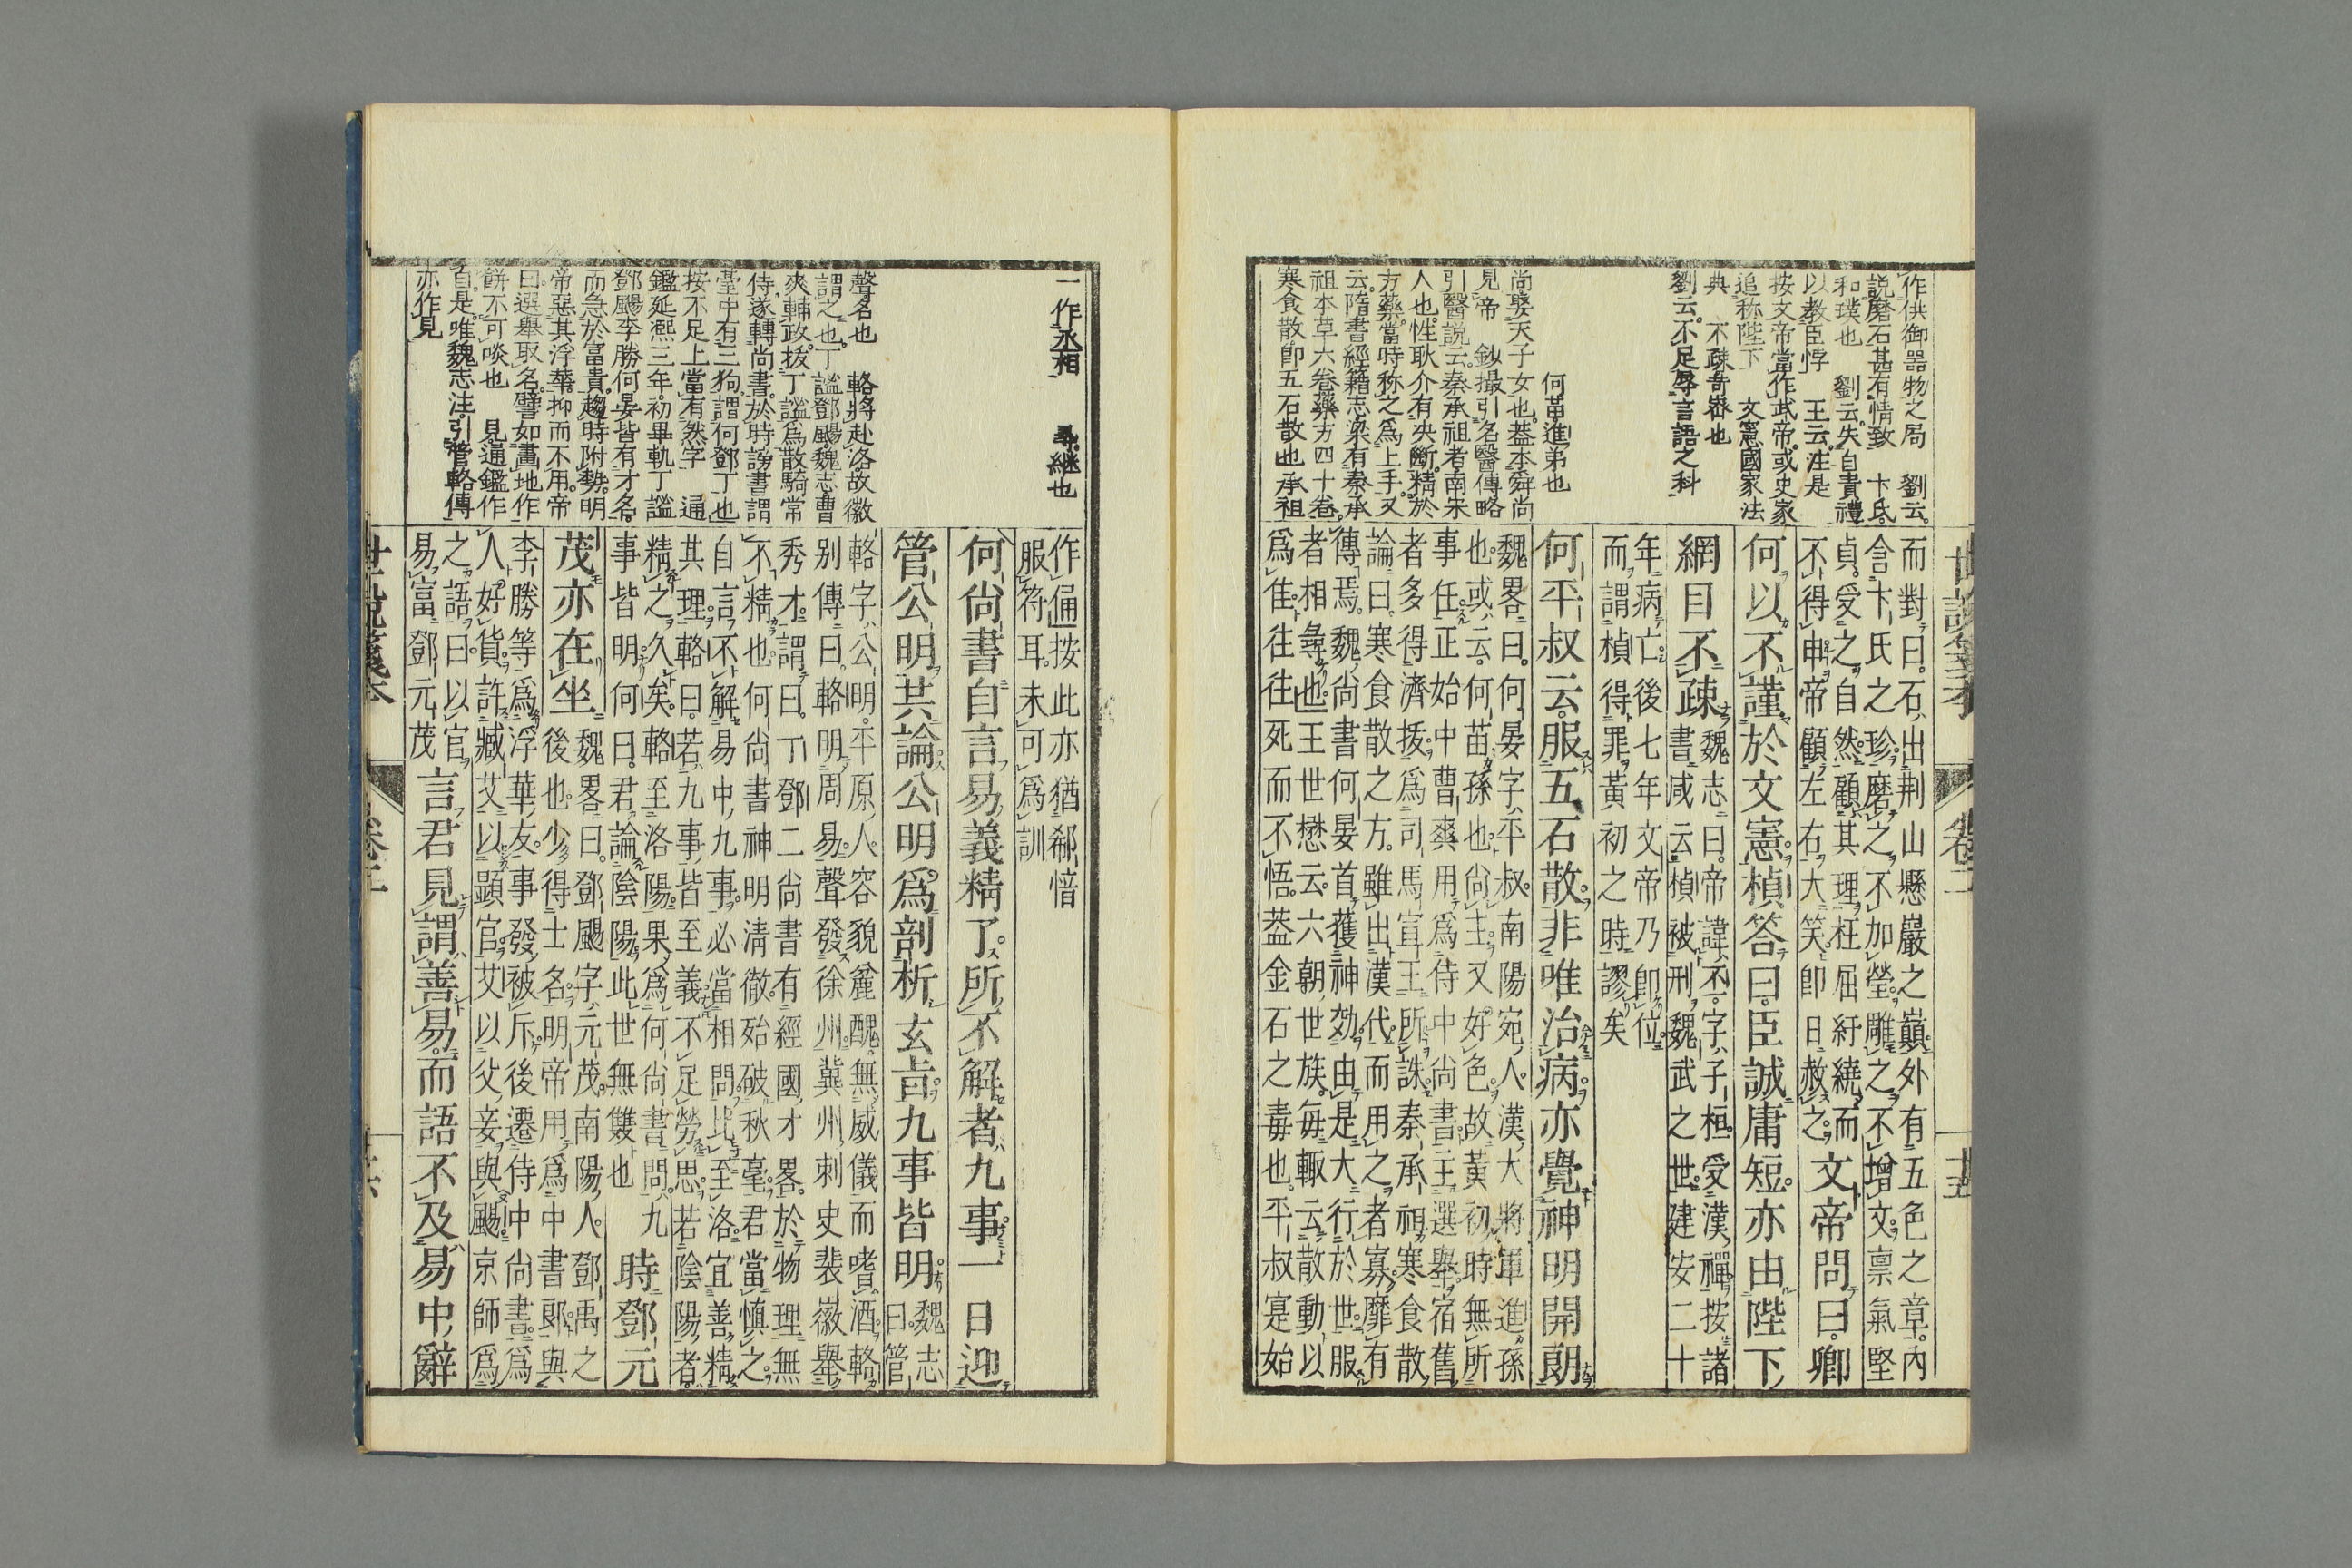 作供御器物之局　劉云
説磨石甚有情致　卞氏
和璞也　劉云失自貴禮
以教臣悖　王云注是
按文帝當作武帝或史家
追称陛下　文憲國家法
典　不疎苛嵾也
劉云不足辱言語之科
何苗進弟也
尚娶天子女也葢本舜尚
見帝　鈔撮引名醫傳略
引醫説云秦承祖者南宋
人也性耿介有决斷精於
方藥當時称之爲上手又
云隋書經籍志梁有秦承
祖本草六卷藥方四十卷
寒食散卽五石散也承祖
世說箋本　卷二　十五
而對曰石出荆山懸巖之巔外有五色之章內
含卞氏之珍磨之不加瑩雕之不增文禀氣堅
貞受之自然顧其理枉屈紆繞而
不得申帝顧左右大笑卽日赦之
文帝問曰卿
何以不謹於文憲楨答曰臣誠庸短亦由陛下
網目不疎
魏志曰帝諱丕字子桓受漢禪按諸
書咸云楨被刑魏武之世建安二十
年病亡後七年文帝乃卽位
而謂楨得罪黃初之時謬矣
何平叔云服五石散非唯治病亦覺神明開朗
魏畧曰何晏字平叔南陽宛人漢大將軍進孫
也或云何苗孫也尚主又好色故黃初時無所
事任正始中曹爽用爲侍中尚書主選舉宿舊
者多得濟拔爲司馬宣王所誅秦承祖寒食散
論曰寒食散之方雖出漢代而用之者寡靡有
傳焉魏尚書何晏首獲神効由是大行於世服
者相尋也王世懋云六朝世族每輒云散動以
爲佳往往死而不悟葢金石之毒也平叔寔始
一作丞相　尋継也
聲名也　輅將赴洛故徽
謂之也丁謐鄧颺魏志曹
爽輔政拔丁謐爲散騎常
侍遂轉尚書於時謗書謂
臺中有三狗謂何鄧丁也
按不足上當有然字　通
鑑延熙三年初畢軌丁謐
鄧颺李勝何晏皆有才名
而急於富貴趨時附勢明
帝惡其浮華抑而不用帝
曰選舉取名譬如畫地作
餅不可啖也　見通鑑作
自是唯魏志注引管輅傳
亦作見
作偏按此亦猶郗愔
服符耳未可爲訓
何尚書自言易義精了所不解者九事一日迎
管公明共論公明爲剖析玄旨九事皆明
魏志
曰管
輅字公明平原人容貌麄醜無威儀而嗜酒輅
别傳曰輅明周易聲發徐州冀州刺史裴徽舉
秀才謂曰丁鄧二尚書有經國才畧於物理無
不精也何尚書神明淸徹殆破秋毫君當愼之
自言不解易中九事必當相問比至洛宜善精
其理輅曰若九事皆至義不足勞思若陰陽者
精之久矣輅至洛陽果爲何尚書問九
事皆明何曰君論陰陽此世無雙也
時鄧元
茂亦在坐
魏畧曰鄧颺字元茂南陽人鄧禹之
後也少得士名明帝用爲中書郎與
李勝等爲浮華友事發被斥後遷侍中尚書爲
人好貨許臧艾以顯官艾以父妾與颺京師爲
之語曰以官
易富鄧元茂
言君見謂善易而語不及易中辭
世說箋本　卷二　十六